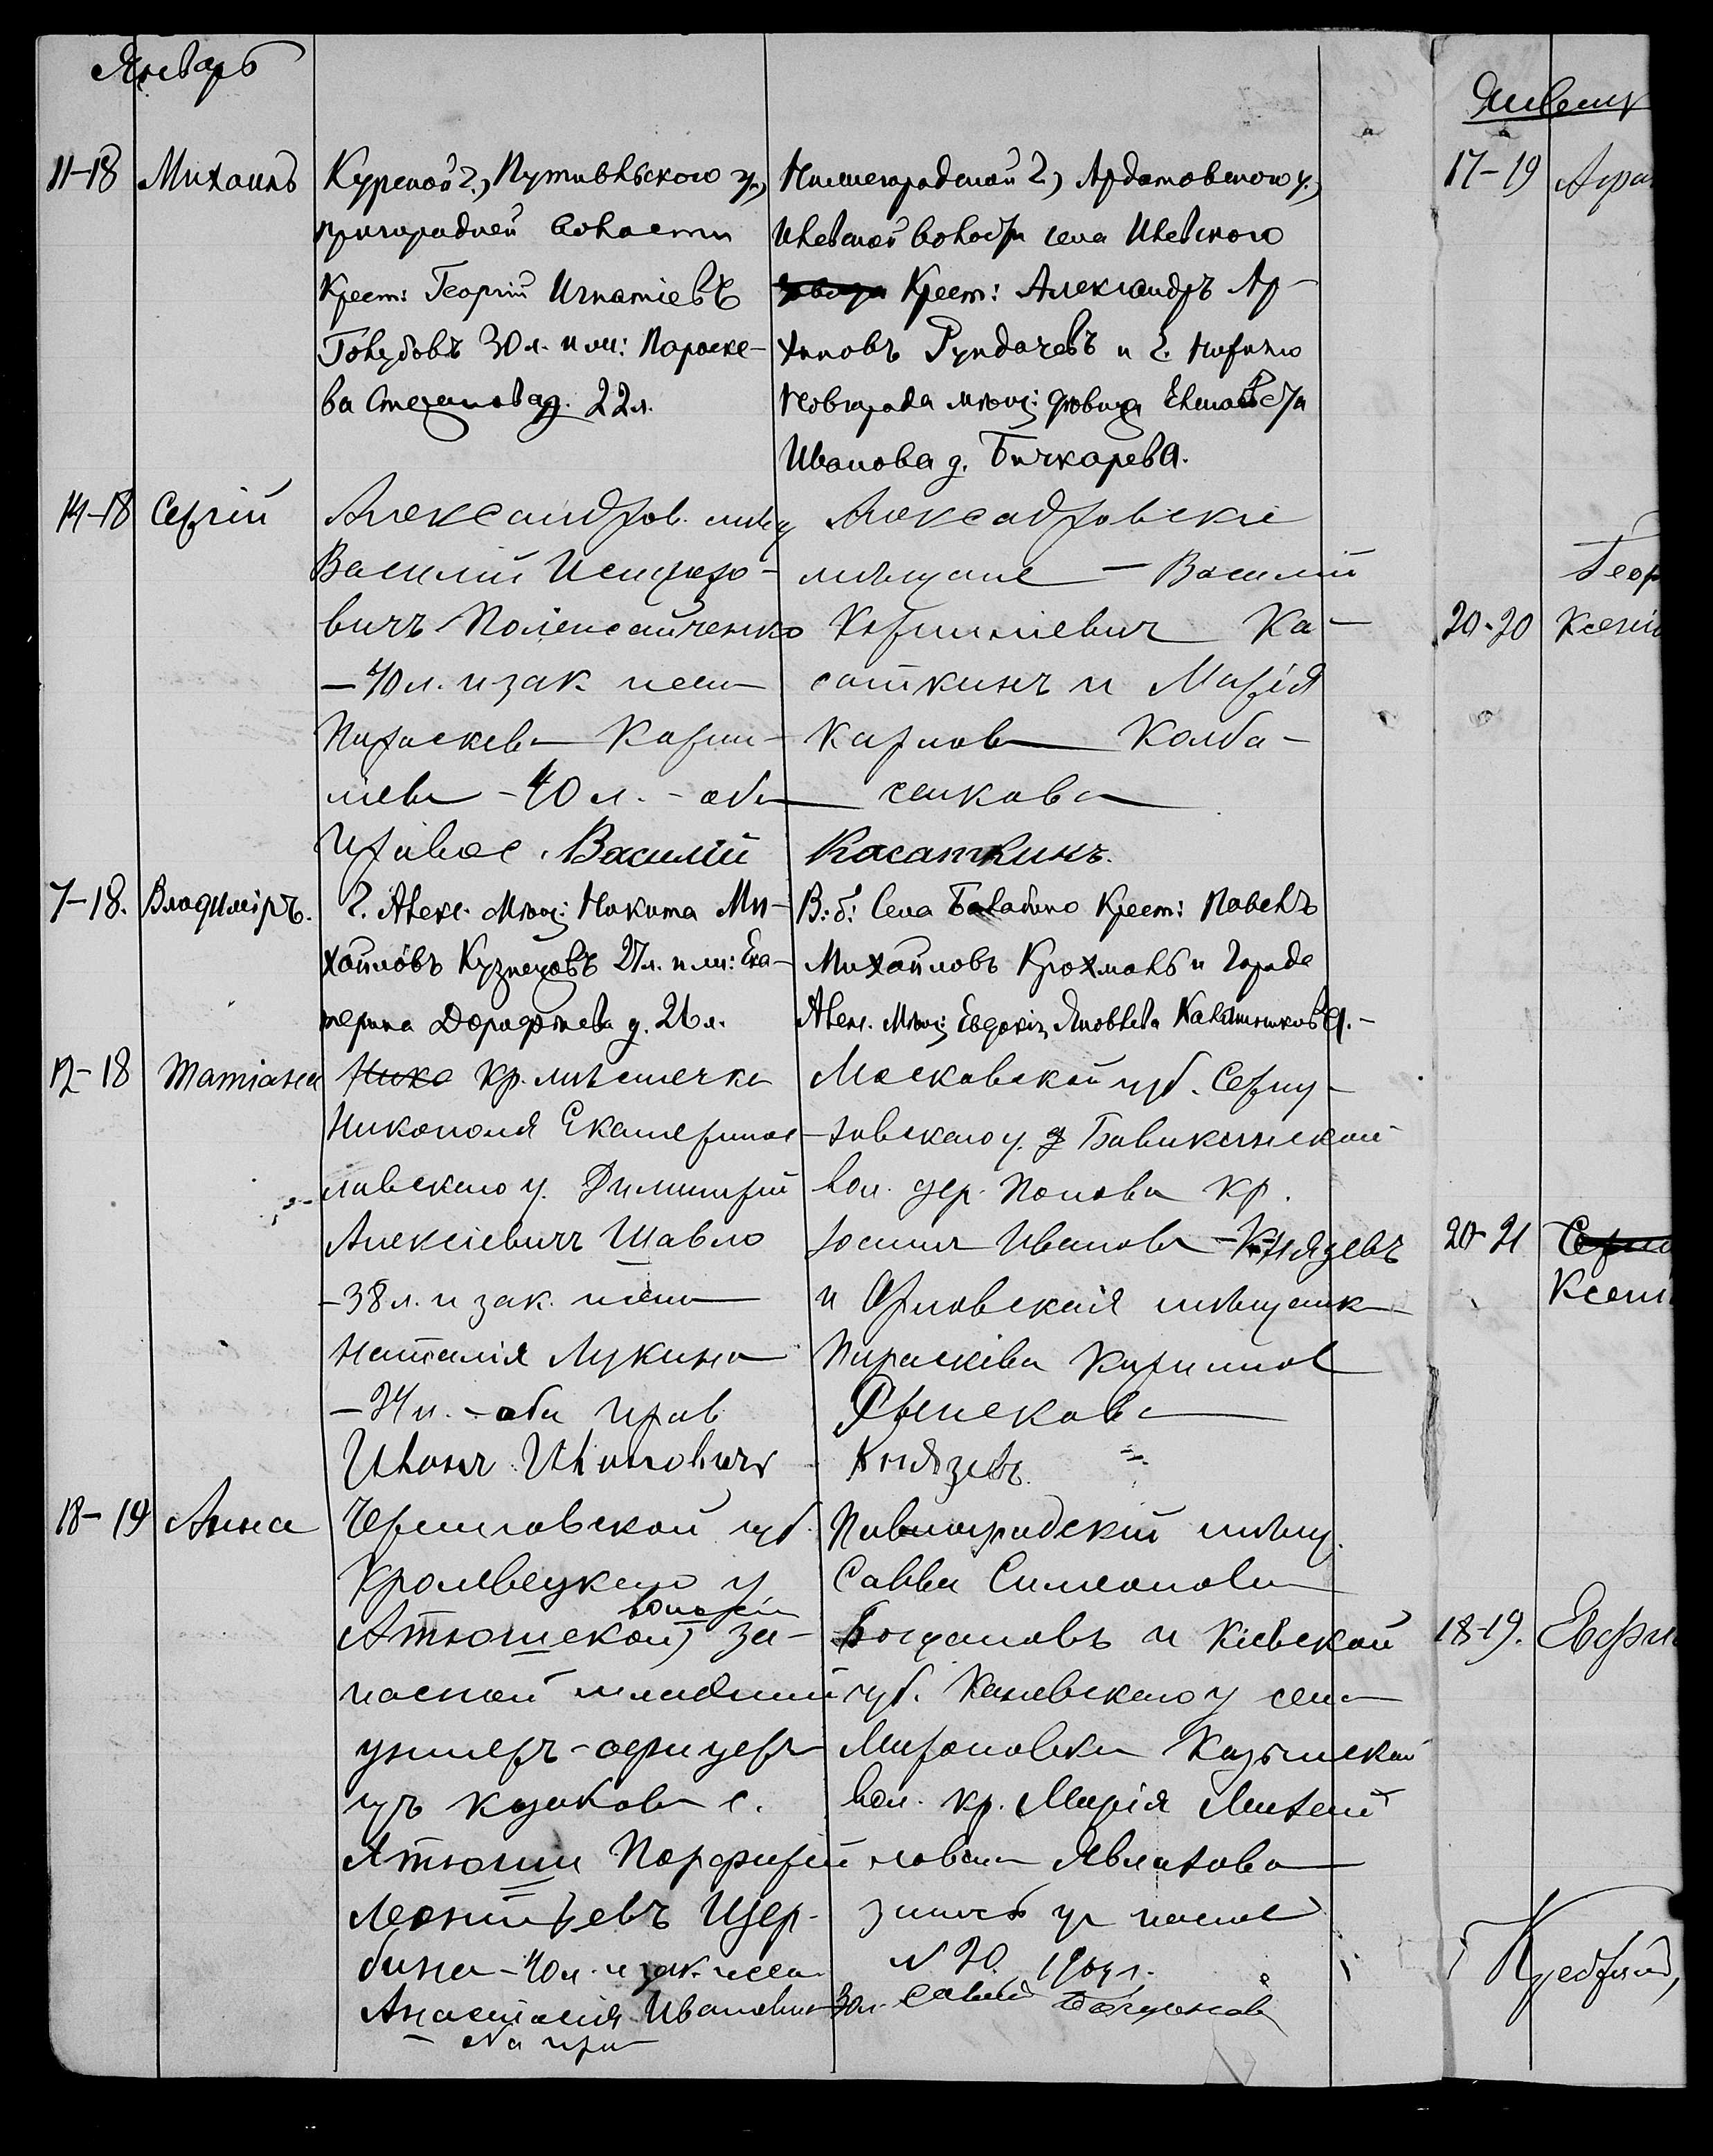 Январь
11-18 Михаилъ
Курской г., Путивльского у.,
пригородней волости
Крест: Георгій Игнатіевъ
Голубовъ 30 л. и ж: Параске-
ва Степановад. 22 л.
Нижегородской г., Ардатовского у.,
Илевской волости села Илевского
Крест: Александръ Ар-
хиповъ Рундачевъ и г. Нижнго
Новгорода мѣщ: дѣвица Елисавета
Иванова д. Бичкарева.
14-18 Сергій
Александров. мѣщ
Василій Исидоро-
вичъ
-40 л. и зак. жена
Параскева Корни-
ліева - 40 л. - оба
право с. Василій
Алексадровскіе
мѣщане - Василій
Корниліевич Ка-
саткинъ и Марія
Карпова Колба-
сникова
Касаткинъ.
7-18. Владиміръ.
Г. Алекс. Мѣщ: Никита Ми-
хайловъ Кузнецовъ 27 л. и ж: Ека-
терина Дорофѣева д. 26 л.
В: б: Села Балабино Крест: Павелъ
Михайловъ Крохмаль и Города
Алекс. Мѣщ: Евдокія Яковлева
12-18 Татіана
Нико кр. мѣстечка
Никополя Екатеринос-
лавского у. Димитрій
Алексіевичъ Шавло
-38 л. и зак. жена
Наталія Лукина
-34 л. - оба прав
Иванъ Ивановичъ
Московской губ. Серпу-
ховского у.
вол. дер. Попова кр.
Иванова Князевъ
и Орловская мѣщанк
Параскева
Князевъ.
18-19 Анна
Черниговской губ.
Кролевецкаго у
волости
Атюшской, за-
пасной младший
унтеръ-офицеръ
изъ казаковъ с.
Атюши Порфирій
Леонтьевъ Щер-
бина - 40 л. и зак. жена
Анастасія Ивановна 30 л.
оба пра
Павлоградскій мѣщ.
Савва Симеонова
Богдановъ и Кіевской
губ. Каневского у села
Мироновки Казинской
вол. кр. Марія Михай
лова
запись
N 20. 1904 г.
Савва Богданов
17-19
Геор
20-20 Ксені
20-21
Ксені
18-19. Евфи